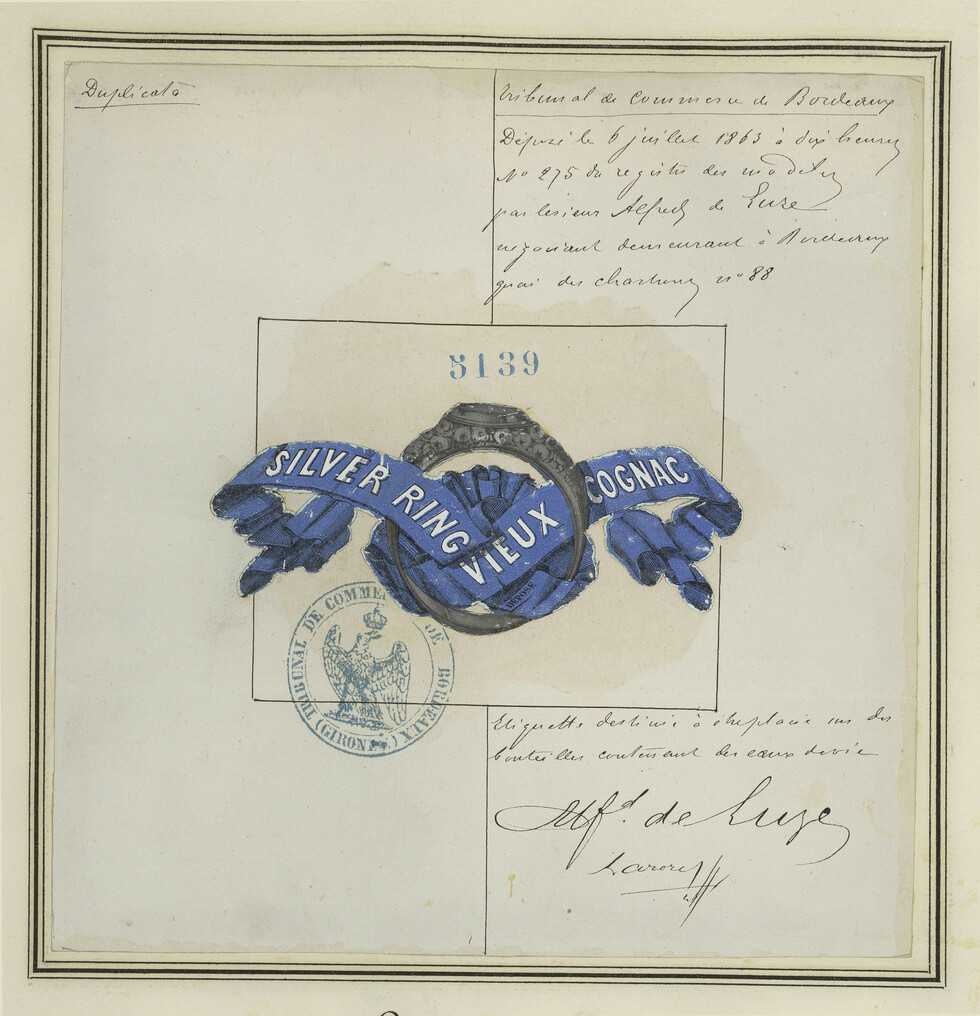 Duplicata
Tribunal de Commerce de Bordeaux
Déposé le 6 juillet 1863 à dix heures
No 275 du registre des modèles
par le sieur Alfred de Luze
négociant demeurant à Bordeaux
quai des chartrons no 88
5139
SILVER RING VIEUX COGNAC
DÉPOSÉ
TRIBUNAL DE COMMERCE DE BORDEAUX
(GIRONDE)
Etiquette destinée à être placée sur des
bouteilles contenant des eaux de vie
Alfd. de Luze